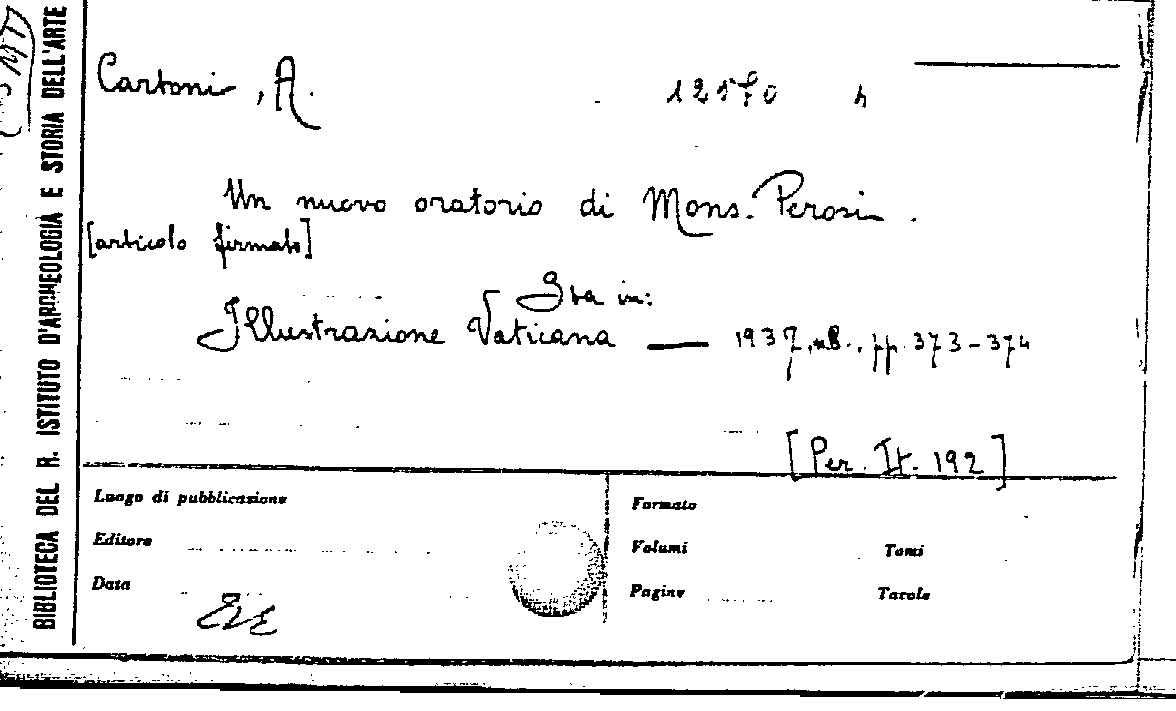 BIBLIOTECA DEL R. ISTITUTO D'ARCHEOLOGIA E STORIA DELL'ARTE
Cartoni, A.
12570
Un nuovo oratorio di Mons. Perosi.
[articolo firmato]
Sta in:
Illustrazione Vaticana — 1937, n8., pp. 373-374
[Per. It. 192]
Luogo di pubblicazione
Formato
Editore
Volumi Tomi
Data
Pagine Tavole